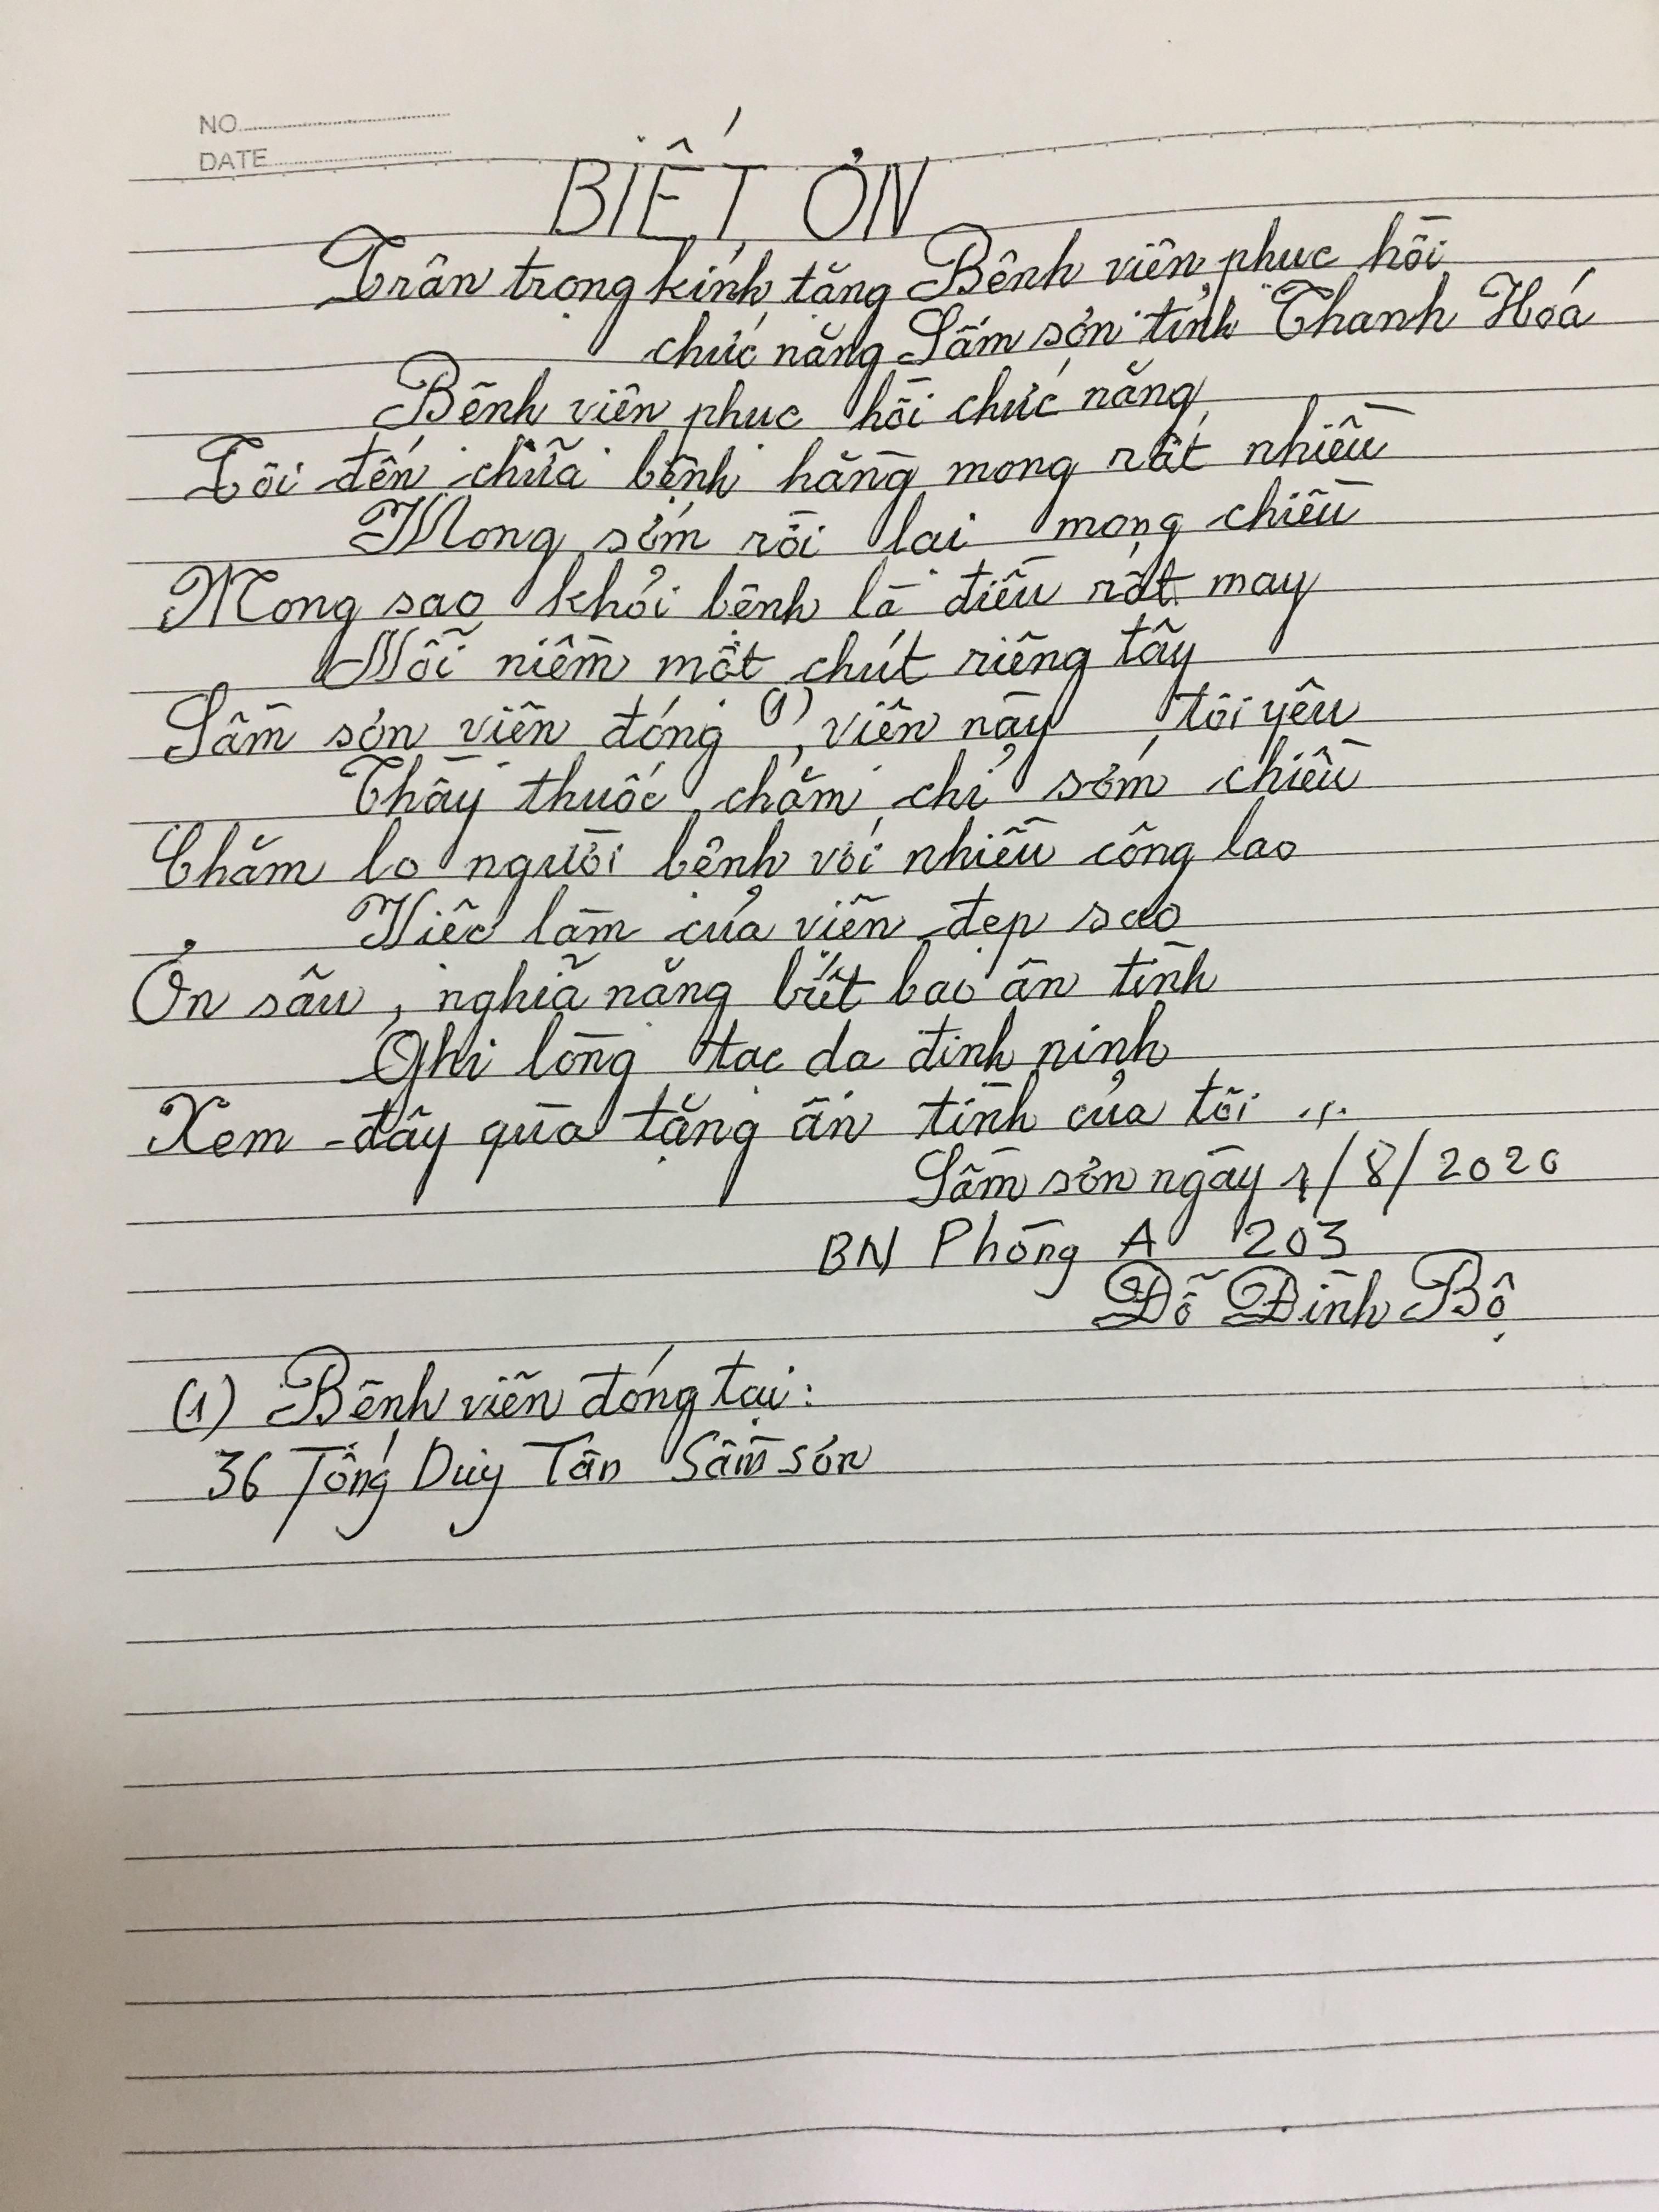 NO
DATE
BIẾT ƠN
Trân trọng kính tặng Bệnh viện phục hồi
chức năng Sầm sơn tỉnh Thanh Hoá
Bệnh viện phục hồi chức năng
Tôi đến chữa bệnh hằng mong rất nhiều
Mong sớm rồi lại mong chiều
Mong sao khỏi bệnh là điều rất may
Nỗi niềm một chút riêng tây
Sầm sơn viện đóng (1), viện này tôi yêu
Thầy thuốc chăm chỉ sớm chiều
Chăm lo người bệnh với nhiều công lao
Việc làm của viện đẹp sao
Ơn sâu, nghĩa nặng biết bao ân tình
Ghi lòng tạc dạ đinh ninh
Xem đây quà tặng ân tình của tôi ...
Sầm sơn ngày 1/8/2020
BN Phòng A 203
Đỗ Đình Bộ
(1) Bệnh viện đóng tại:
36 Tống Duy Tân Sầm sơn